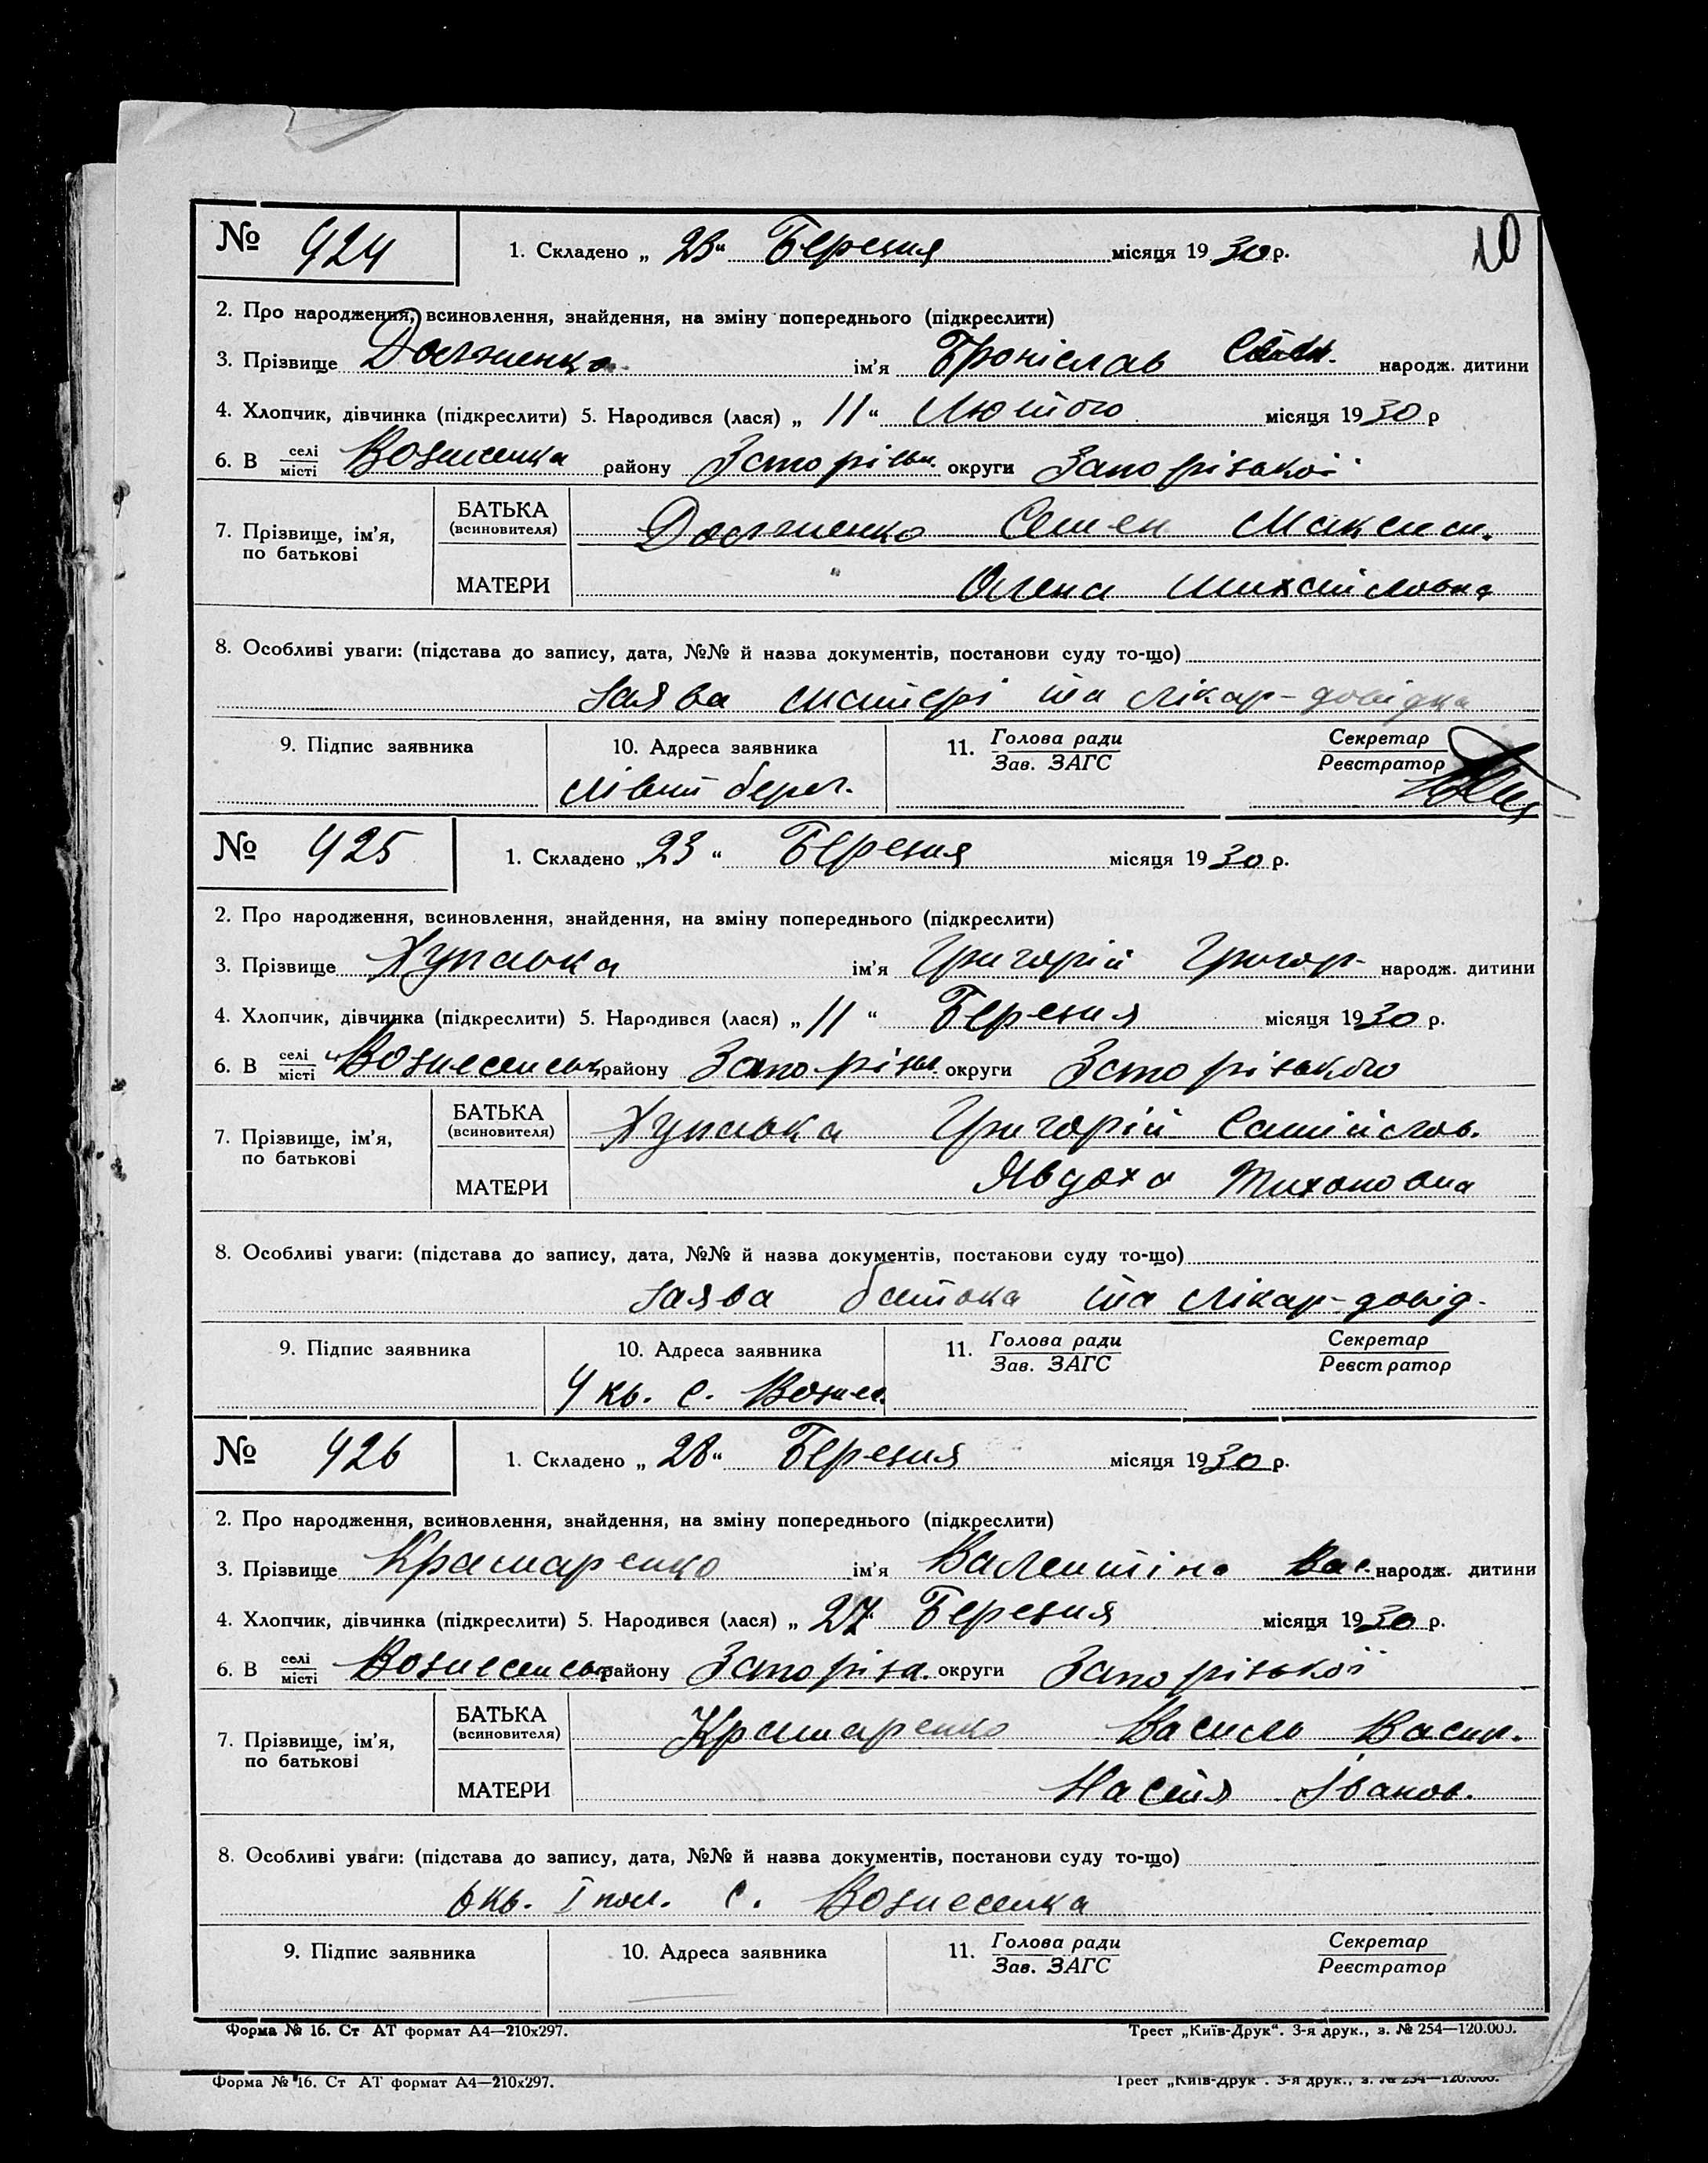 10
№ 424
1. Складено „ 28 “ Березня місяця 1930 р.
2. Про народження, всиновлення, знайдення, на зміну попереднього (підкреслити)
3. Прізвище Долженко ім’я Броніслав Сем. народж. дитини
4. Хлопчик, дівчинка (підкреслити) 5. Народився (лася) „ 11 “ Лютого місяця 1930 р
6. В селі/місті Вознесенка району Запорізьк. округи Запорізької
7. Прізвище, ім’я, по батькові БАТЬКА (всиновителя) Долженко Семен Максим.
МАТЕРИ " Олена Михайловна
8. Особливі уваги: (підстава до запису, дата, №№ й назва документів, постанови суду то-що)
Заява матері та лікар-довідка
9. Підпис заявника 10. Адреса заявника 11. Голова ради/Зав. ЗАГС Секретар/Реєстратор
Лівий берег.
№ 425
1. Складено „ 23 “ Березня місяця 1930 р.
2. Про народження, всиновлення, знайдення, на зміну попереднього (підкреслити)
3. Прізвище Хупавка ім’я Григорій Григор- народж. дитини
4. Хлопчик, дівчинка (підкреслити) 5. Народився (лася) „ 11 “ Березня місяця 1930 р.
6. В селі/місті району Запорізьк. округи Запорізького
7. Прізвище, ім’я, по батькові БАТЬКА (всиновителя) Хупавка Григорій Самійлов.
МАТЕРИ Явдоха Тихоновна
8. Особливі уваги: (підстава до запису, дата, №№ й назва документів, постанови суду то-що)
Заява батька та лікар-довід-
9. Підпис заявника 10. Адреса заявника 11. Голова ради/Зав. ЗАГС Секретар/Реєстратор
4 кв. с. Вознес.
№ 426
1. Складено „ 28 “ Березня місяця 1930 р.
2. Про народження, всиновлення, знайдення, на зміну попереднього (підкреслити)
3. Прізвище Крамаренко ім’я Валентіна Вас. народж. дитини
4. Хлопчик, дівчинка (підкреслити) 5. Народився (лася) „ 27 “ Березня місяця 1930 р.
6. В селі/місті району Запорізь. округи Запорізької
7. Прізвище, ім’я, по батькові БАТЬКА (всиновителя) Крамаренко Василь Васил.
МАТЕРИ Настя Іванов.
8. Особливі уваги: (підстава до запису, дата, №№ й назва документів, постанови суду то-що)
6 кв. I пол. с. Вознесенка
9. Підпис заявника 10. Адреса заявника 11. Голова ради/Зав. ЗАГС Секретар/Реєстратор
Форма № 16. Ст АТ формат А4—210х297. Трест „Київ-Друк“. 3-я друк., з. № 254—120.000.
Форма № 16. Ст АТ формат А4—210х297. Трест „Київ-Друк“. 3-я друк., з. № 254—120.000.